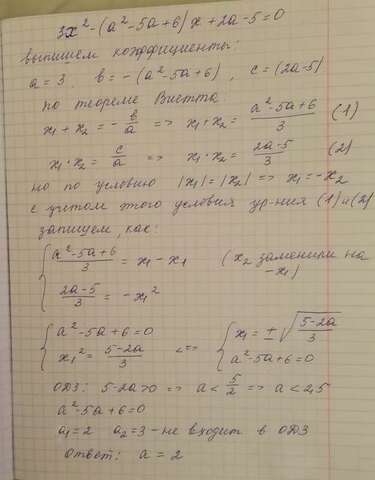 3x² - (a² - 5a + 6)x + 2a - 5 = 0
выпишем коэффициенты:
a = 3, b = -(a² - 5a + 6), c = (2a - 5)
по теореме Виетта
x₁ + x₂ = -b/a => x₁ + x₂ = (a² - 5a + 6)/3 (1)
x₁ · x₂ = c/a => x₁ · x₂ = (2a - 5)/3 (2)
но по условию |x₁| = |x₂| => x₁ = -x₂
с учётом этого условия ур-ния (1) и (2)
запишем, как:
{ (a² - 5a + 6)/3 = x₁ - x₁ (x₂ заменим на -x₁)
(2a - 5)/3 = -x₁²
{ a² - 5a + 6 = 0 <=> { x₁ = ±√((5 - 2a)/3)
x₁² = (5 - 2a)/3 a² - 5a + 6 = 0
ОДЗ: 5 - 2a > 0 => a < 5/2 => a < 2,5
a² - 5a + 6 = 0
a₁ = 2 a₂ = 3 - не входит в ОДЗ
Ответ: a = 2